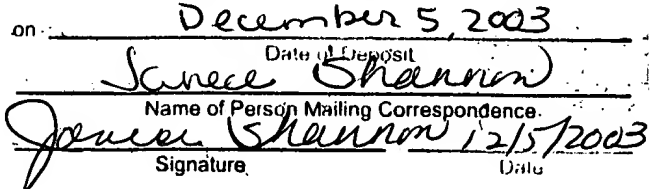 on December 5, 2003
Date of Deposit
Shannon
Name of Person Mailing Correspondence
Shannon 12/5/2003
Signature Date